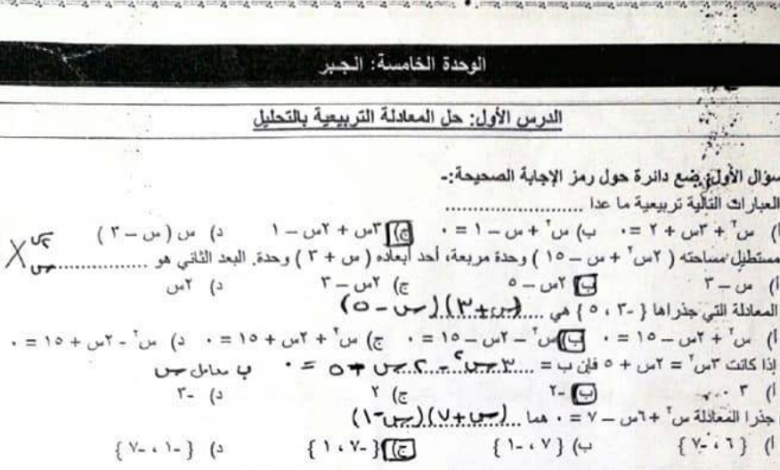 الوحدة الخامسة: الجبر
الدرس الأول: حل المعادلة التربيعية بالتحليل
سؤال الأول: ضع دائرة حول رمز الإجابة الصحيحة:-
العبارات التالية تربيعية ما عدا ..........
أ) س٢ + ٣س + ٢ = ٠ ب) س٢ + س - ١ = ٠ ج) ٣س + ٢س - ١ د) س ( س - ٣ )
مستطيل مساحته ( ٢س٢ + س - ١٥ ) وحدة مربعة، أحد أبعاده ( س + ٣ ) وحدة. البعد الثاني هو ..........
أ) س - ٣ ب) ٢س - ٥ ج) ٢س - ٣ د) ٢س
المعادلة التي جذراها { -٣ ، ٥ } هي (س+٣)(س-٥)
أ) س٢ + س - ١٥ = ٠ ب) س٢ - ٢س - ١٥ = ٠ ج) س٢ + ٢س + ١٥ = ٠ د) س٢ - ٢س + ١٥ = ٠
إذا كانت ٣س٢ = ٢س + ٥ فإن ب = ٣س٢ - ٢س + ٥ = ٠ ب معامل س
أ) ٣ ب) -٢ ج) ٢ د) -٣
جذرا المعادلة س٢ + ٦س - ٧ = ٠ هما (س+٧)(س-١)
أ) { ٦ ، -٧ } ب) { ٧ ، -١ } ج) { -٧ ، ١ } د) { -١ ، -٧ }